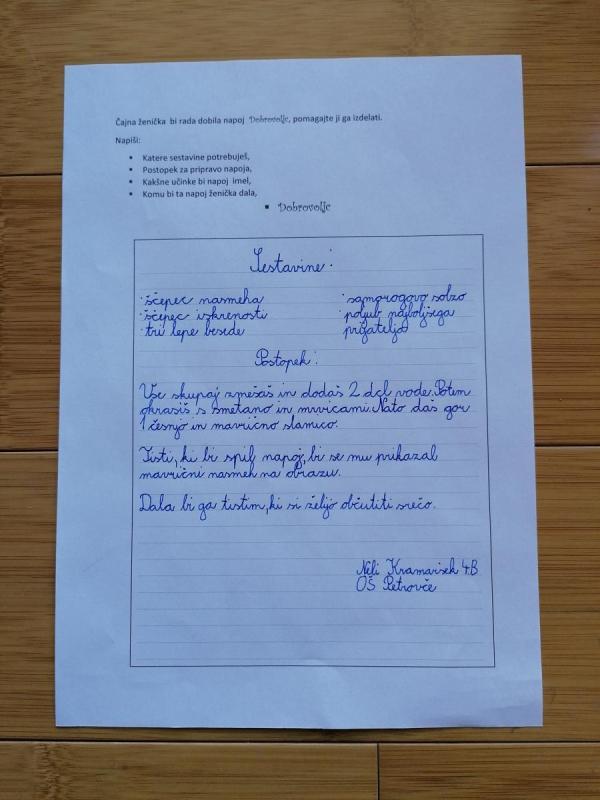 Čajna ženička bi rada dobila napoj Dobrovolje, pomagajte ji ga izdelati.
Napiši:
• Katere sestavine potrebuješ,
• Postopek za pripravo napoja,
• Kakšne učinke bi napoj imel,
• Komu bi ta napoj ženička dala,
▪ Dobrovolje
Sestavine:
·ščepec nasmeha
·ščepec iskrenosti
·tri lepe besede
·samorogovo solzo
·poljub najboljšega
prijatelja
Postopek:
Vse skupaj zmešaš in dodaš 2 dcl vode. Potem
okrasiš s smetano in mrvicami. Nato daš gor
1 češnjo in mavrično slamico.
Tisti, ki bi spil napoj, bi se mu prikazal
mavrični nasmeh na obrazu.
Dala bi ga tistim, ki si želijo občutiti srečo.
Neli Kramaršek 4.B
OŠ Petrovče